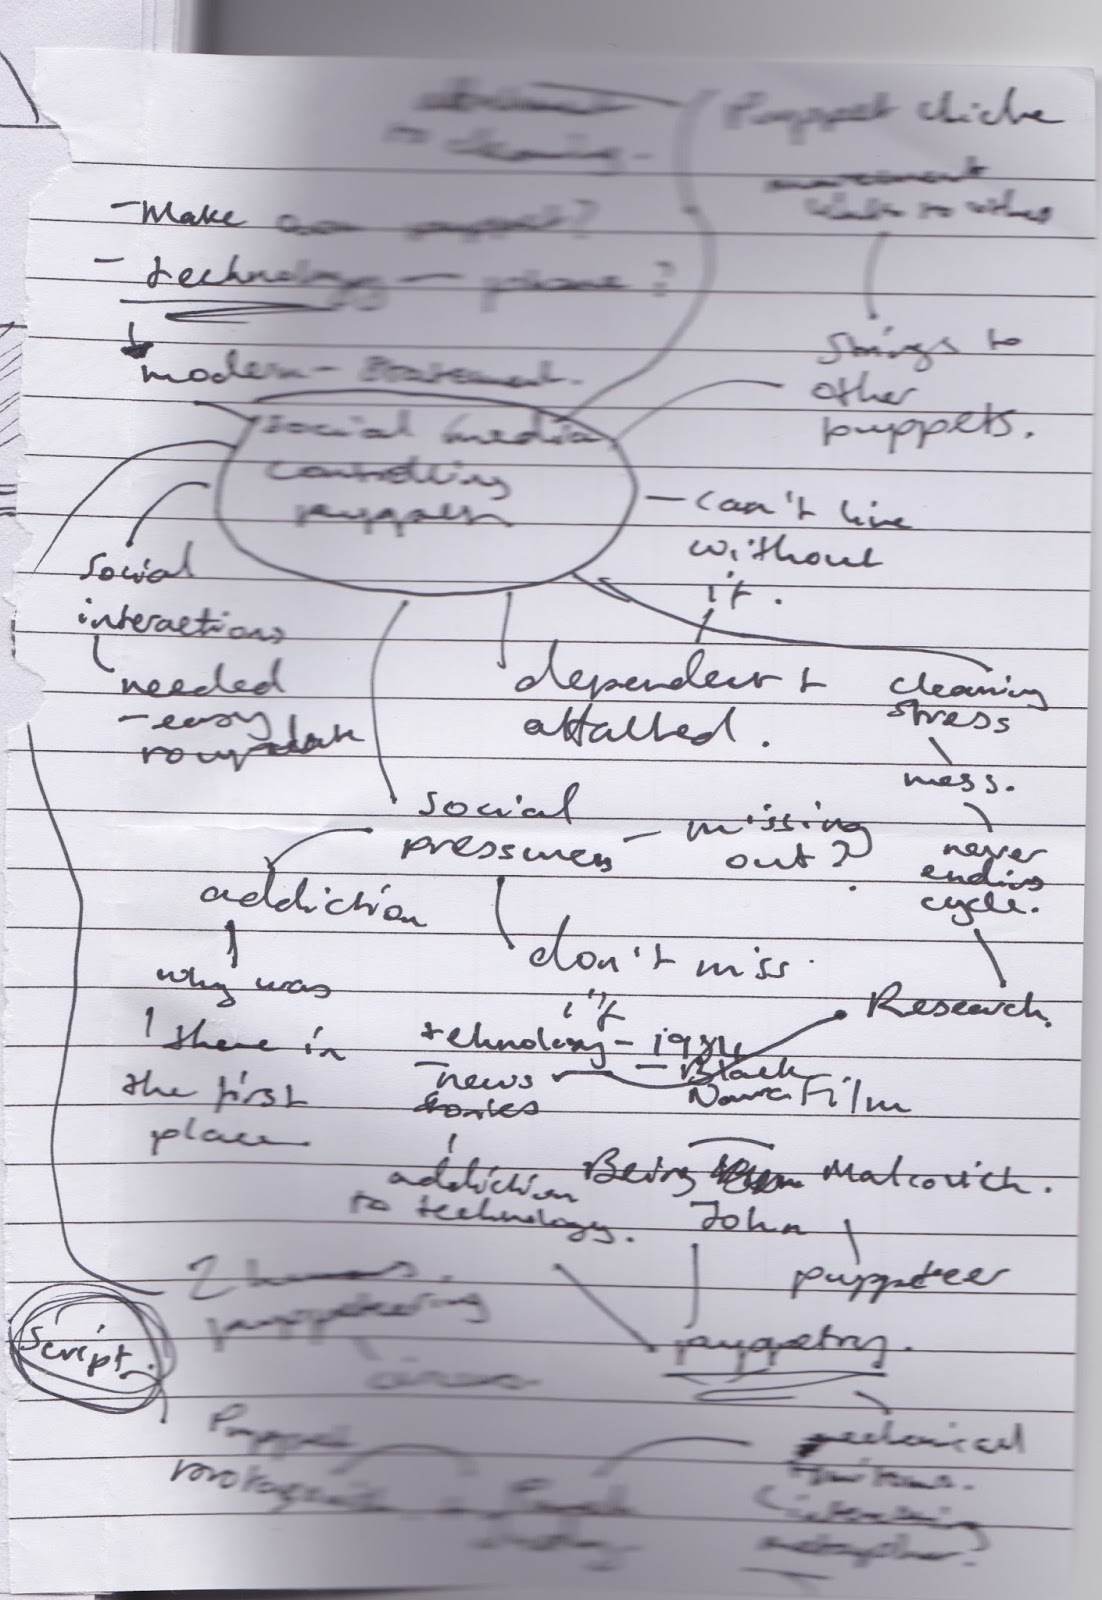 to cleaning.
Puppet cliche
movement
links to
- Make own puppet?
- technology - phone?
modern - statement.
Strings to
other
puppets.
social media
controlling
- can't live
without
it.
social
interactions
needed
- easy
dependent +
attatched.
cleaning
stress
mess.
never
ending
cycle.
Research.
social
pressures - missing
out?
addiction
don't miss
it
why was
there in
the first
place
technology - 1984
- news
stories
- Black
Film
addiction
to technology.
Being Malcovich.
John
puppeteer
2 humans.
puppeteering
puppetry.
script.
circus
Puppet
mechanical
(interesting
metaphor?